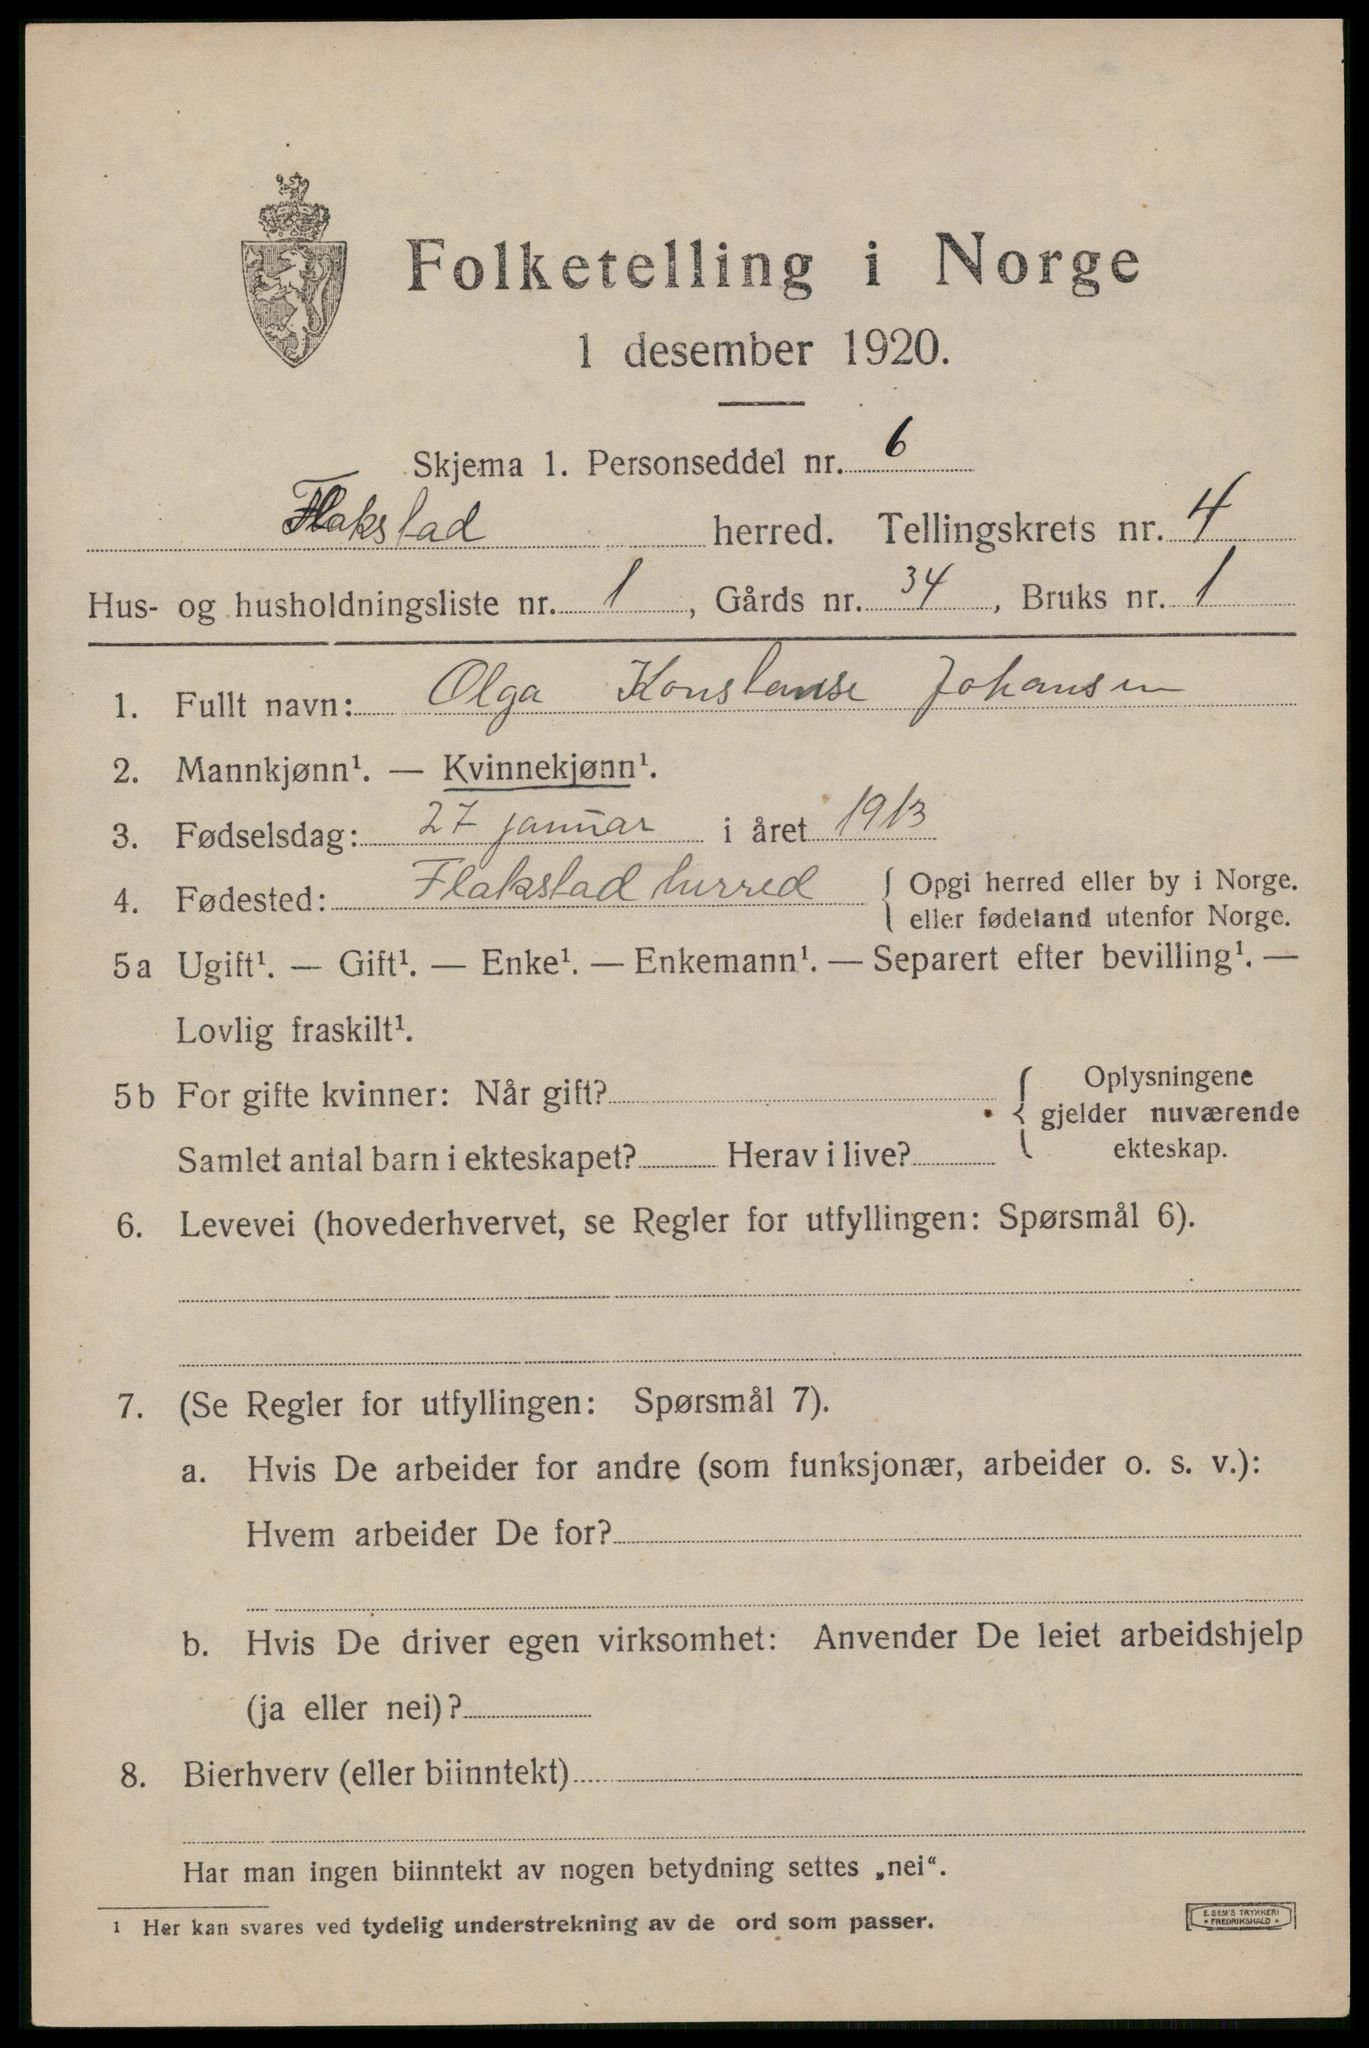 Folketelling i Norge
1 desember 1920.
Skjema 1. Personseddel nr. 6
Flakstad herred. Tellingskrets nr. 4
Hus- og husholdningsliste nr. 1, Gårds nr. 34, Bruks nr. 1
1. Fullt navn: Olga Konstanse Johansen
2. Mannkjønn¹. — Kvinnekjønn¹.
3. Fødselsdag: 27 januar i året 1913
4. Fødested: Flakstad herred { Opgi herred eller by i Norge.
eller fødeland utenfor Norge.
5a Ugift¹. — Gift¹. — Enke¹. — Enkemann¹. — Separert efter bevilling¹. —
Lovlig fraskilt¹.
5b For gifte kvinner: Når gift?
Samlet antal barn i ekteskapet? Herav i live?
Oplysningene
gjelder nuværende
ekteskap.
6. Levevei (hovederhvervet, se Regler for utfyllingen: Spørsmål 6).
7. (Se Regler for utfyllingen: Spørsmål 7).
a. Hvis De arbeider for andre (som funksjonær, arbeider o. s. v.):
Hvem arbeider De for?
b. Hvis De driver egen virksomhet: Anvender De leiet arbeidshjelp
(ja eller nei)?
8. Bierhverv (eller biinntekt)
Har man ingen biinntekt av nogen betydning settes „nei“.
1 Her kan svares ved tydelig understrekning av de ord som passer.
E. SEM'S TRYKKERI
• FREDRIKSHALD •